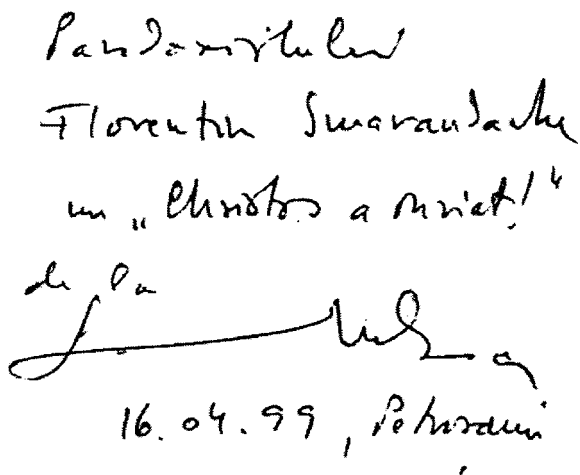 Paradoxistului
Florentin Smarandache
un „Christos a înviat!“
de la
16.04.99, Petroșani